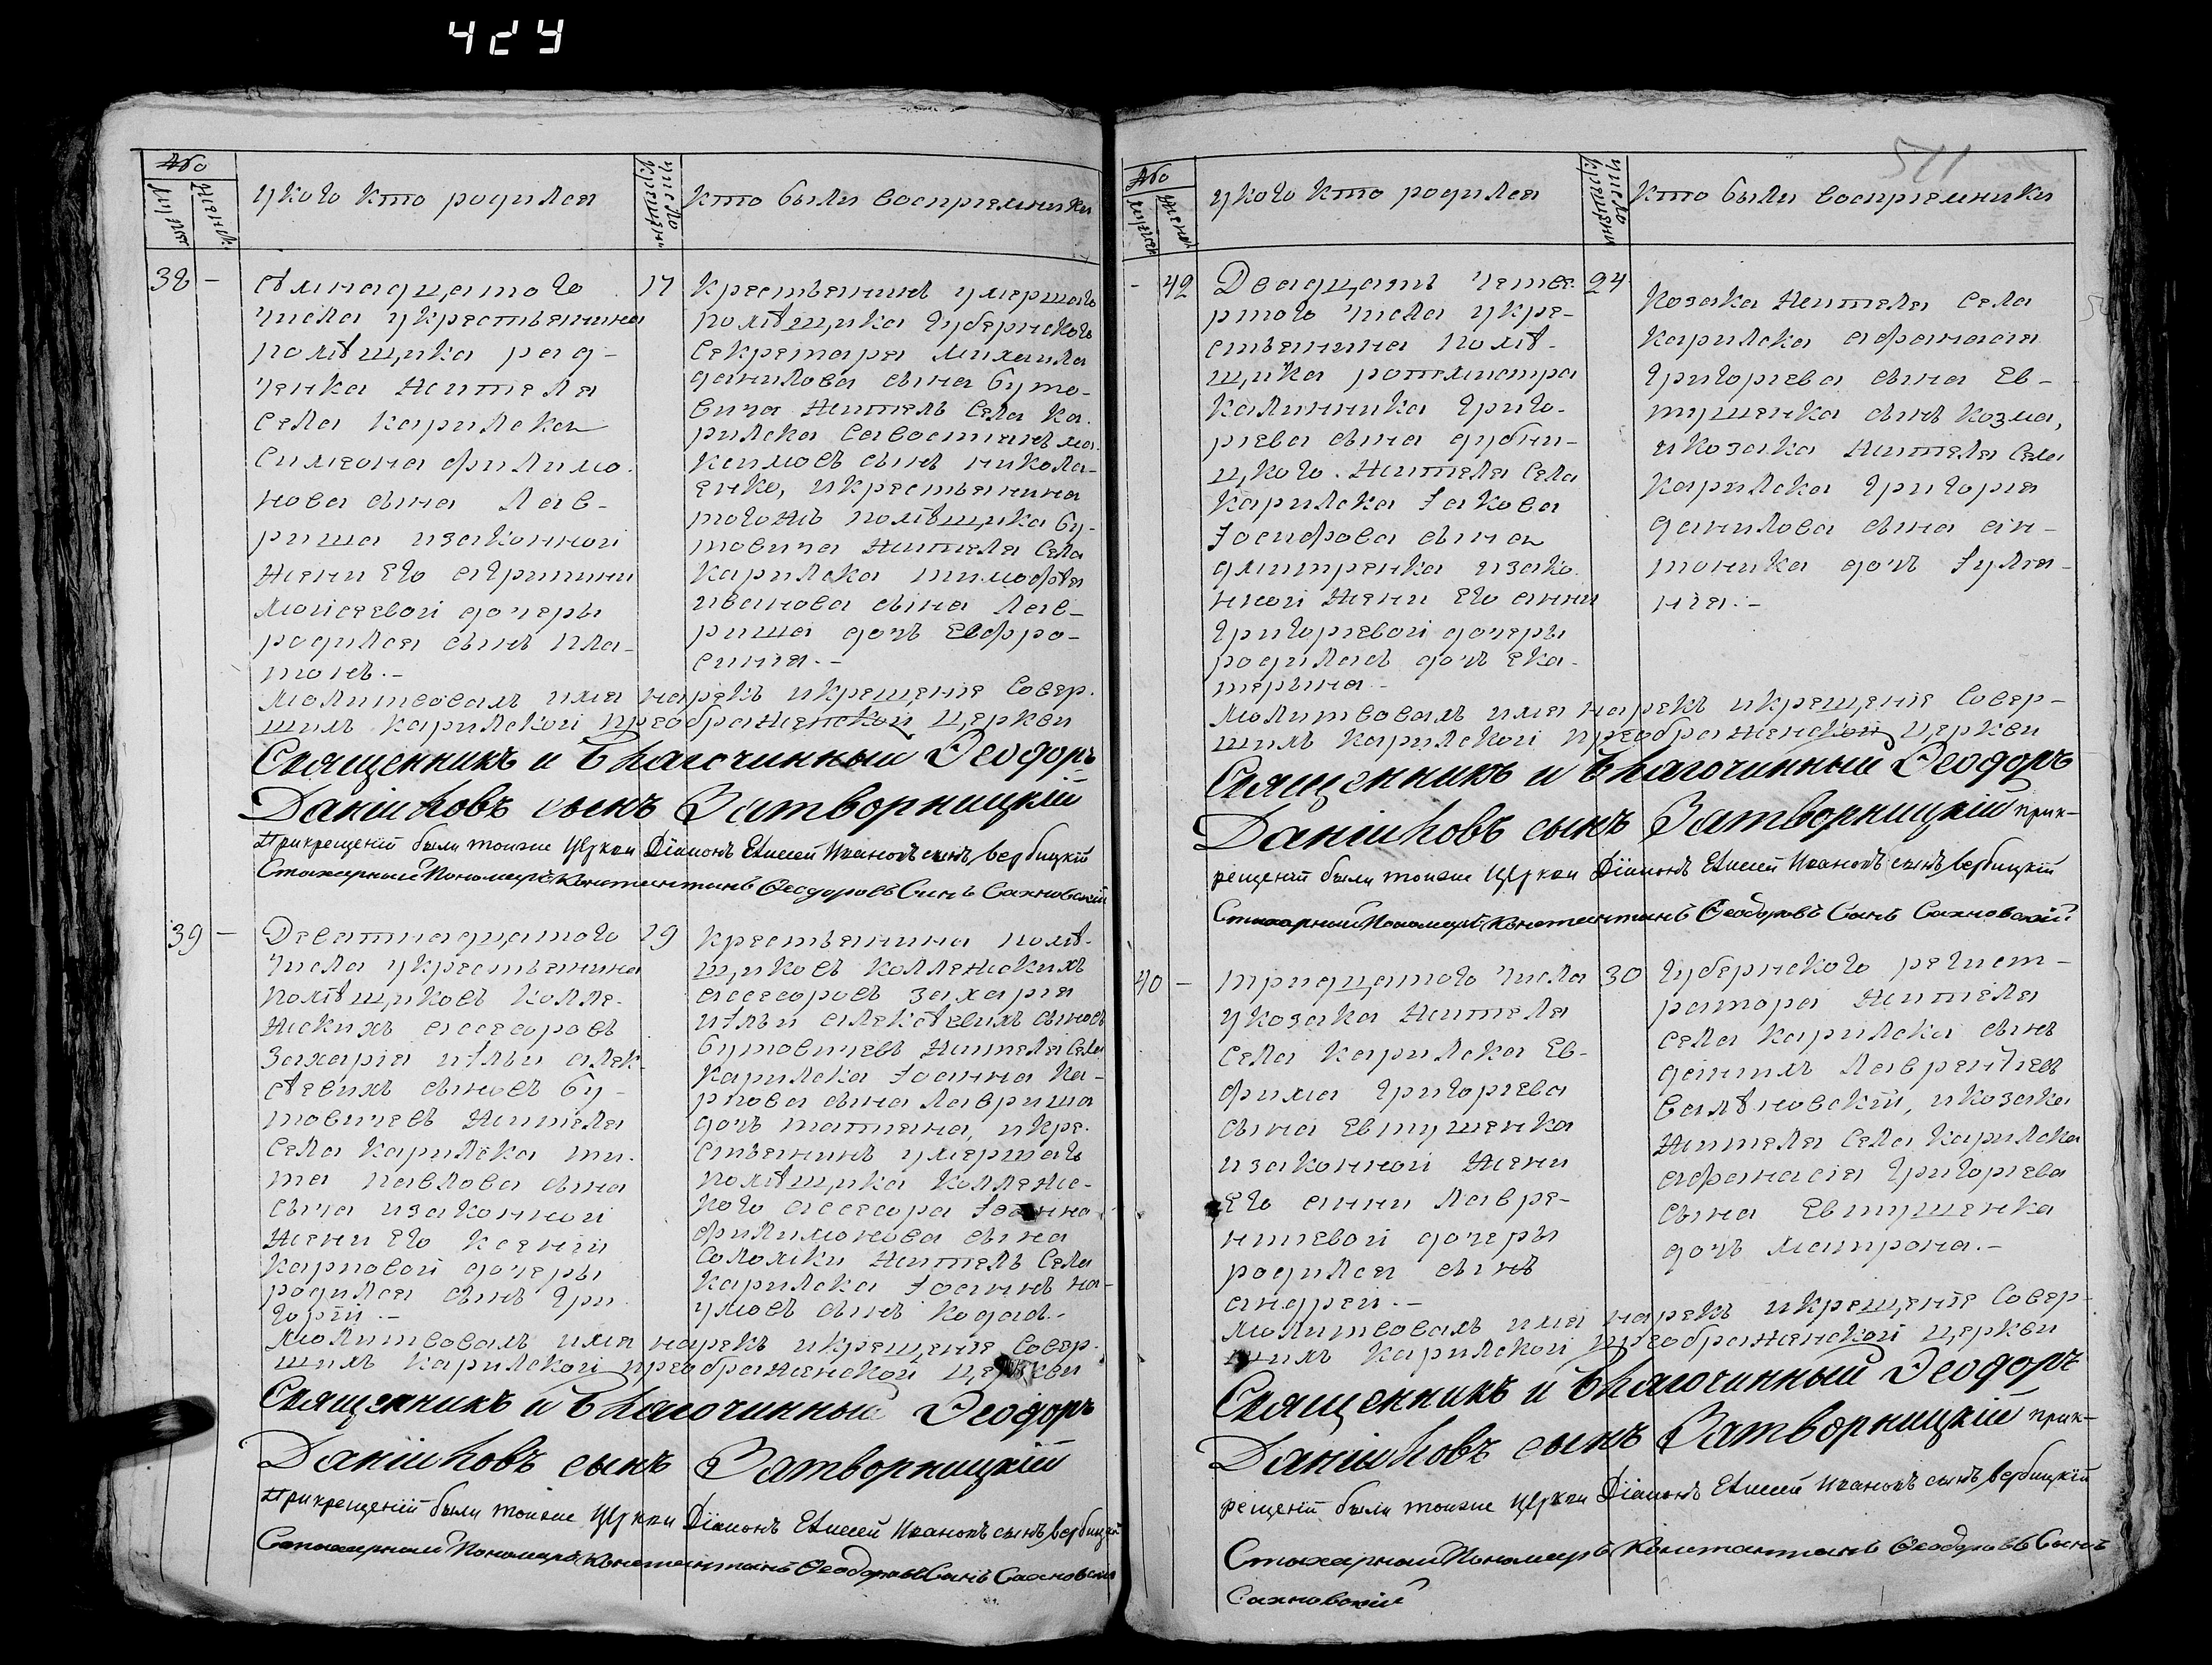 424
511
Або
мужеск
женск
у кого кто родился
число крещени
кто были восприемники
38 -
семнадцатого
числа укрестьянина
помѣщика рад-
ченка жителя
села карилска
симеона филимо-
нова сына лав-
риша изаконной
жени его агрипини
моисеевой дочеры
родился сынъ пла-
тонъ.-
17
крестьянинъ умершаго
помѣщика губернского
секретара михаила
данилова сына буто-
вича житель села ка-
рилска савостианъ ма-
ксимовъ сынъ никола-
енко, икрестьянина
тогожъ помѣщика бу-
товича жителя села
карилска тимофѣя
иванова сына лав-
риша дочъ евфро-
синия.-
молитвовалъ имя нарекъ икрещение совер-
шилъ карилской преображенской церкви
Священникъ и благочинный Ѳеодоръ
Даніиловъ сынъ Затворницкій
Прикрещеніи были тоиже Церкви Діаконъ Елисей Ивановъ сынъ вербицкій
Стихарный Пономарь Константинъ Ѳеодоровъ Синъ Сахновскій
39 -
Девятнадцатого
числа укрестьянина
помѣщиковъ колле-
жскихъ асесоровъ
захарія иильи алек-
сѣевихъ сыновъ бу-
товичевъ жителя
села карилска ти-
та павлова сына
изаконной
жени его ксении
карповой дочеры
родился сынъ гри-
горій.-
19
крестьянина помѣ-
щиковъ коллежскихъ
асесоровъ захарія
иильи алексѣевихъ сыновъ
бутовичевъ жителя села
карилска Іоанна ка-
рпова сына лавриша
дочъ татияна, икре-
стьянинъ умершаго
помѣщика коллежс-
кого асесора Іоанна
филимонова сына
соломки житель села
карилска Іоаннъ на-
умовъ сынъ
молитвовалъ имя нарекъ икрещение совер-
шилъ карилской преображенской церкви
Священникъ и благочинный Ѳеодоръ
Даніиловъ сынъ Затворницкій
Прикрещеніи были тоиже Церкви Діаконъ Елисей Ивановъ сынъ вербицкій
Стихарный Пономарь Константинъ Ѳеодоровъ Синъ Сахновскій
Або
мужеск
женск
у кого кто родился
число крещени
кто были восприемники
- 42
Двадцать четве-
ртого числа укре-
стьянина помѣ-
щика ротмистра
калинника григо-
риева сына дубни-
цкого. жителя села
карилска Іакова
Іосифова сына
дмитренка изако-
нной жени его анни
григориевой дочеры
родилась дочъ ека-
терына.-
24
козака жителя села
карилска афанасия
григориева сына Ев-
тушенка сынъ козма,
икозака жителя села
карилска григория
данилова сына ан-
тоника дочъ Іулиа-
ния.-
молитвовалъ имя нарекъ икрещение совер-
шилъ карилской преображенской церкви
Священникъ и благочинный Ѳеодоръ
Даніиловъ сынъ Затворницкій прик-
рещеніи были тоиже Церкви Діаконъ Елисей Ивановъ сынъ вербицкій
Стихарный Пономарь Константинъ Ѳеодоровъ Синъ Сахновскій
40 -
тридцатого числа
укозака жителя
села карилска Ев-
фима григориева
сына евтушенка
изаконной жени
его анни лавре-
нтиевой дочеры
родился сынъ
андрей.-
30
губернского регист-
ратора жителя
села карилска сынъ
данилъ лаврентиевъ
икозака
жителя села карилска
афанасія григориева
сына Евтушенка
дочъ матрона.-
молитвовалъ имя нарекъ икрещение совер-
шилъ карилской преображенской церкви
Священникъ и благочинный Ѳеодоръ
Даніиловъ сынъ Затворницкій прик-
рещеніи были тоиже Церкви Діаконъ Елисей Ивановъ сынъ вербицкій
Стихарный Пономарь Константинъ Ѳеодоровъ Синъ
Сахновскій